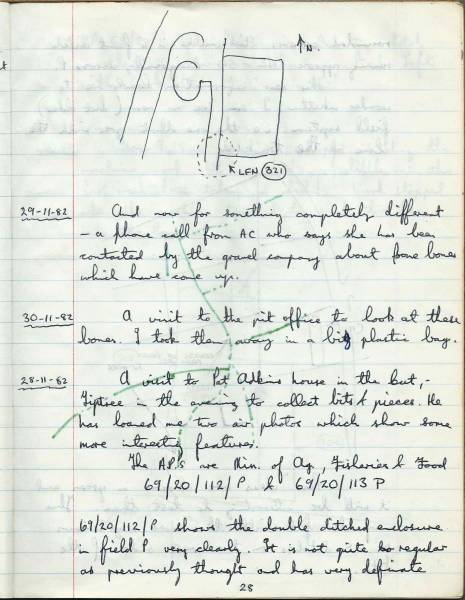 ↑N.
LFN 321
29-11-82 And now for something completely different
- a phone call from AC who says she has been
contacted by the gravel company about some bones
which have come up.
30-11-82 A visit to the pit office to look at these
bones. I took them away in a big plastic bag.
28-11-82 A visit to Pat Adkins house in the but,-
Tiptree in the evening to collect bits & pieces. He
has loaned me two air photos which show some
more interesting features.
The A.P.s are Min. of Ag, Fisheries & Food
69/20/112/P & 69/20/113 P
69/20/112/P shows the double ditched enclosure
in field P very clearly. It is not quite so regular
as previously thought and has very definate
28